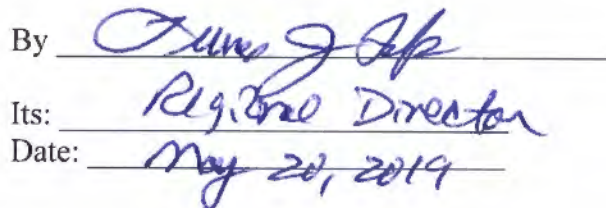 By
Its: Regional Director
Date: May 20, 2019